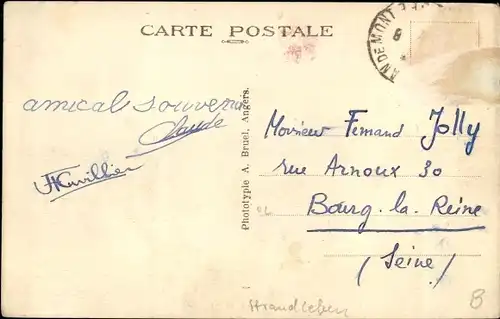 CARTE POSTALE
ANDEMONT
8
amical souvenir
Claude
Phototypie A. Bruel, Angers.
Monsieur Fernand Jolly
rue Arnoux 30
Bourg-la-Reine
(Seine)
Strandleben
B